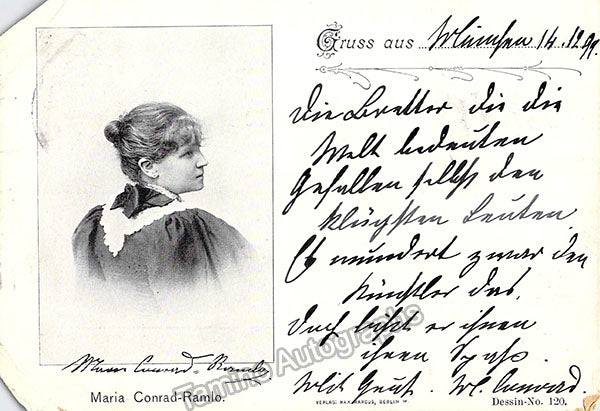 Gruss aus München 14.12.99.
Die Bretter die die
Welt bedeuten
Gefallen selbst den
klügsten Leuten.
Es wundert zwar den
Künstler das,
Doch läßt er ihnen
ihren Spaß.
Mit Gruß. M. Conrad.
Maria Conrad-Ramlo
Maria Conrad-Ramlo.
VERLAG: MAX MARCUS, BERLIN W.
Dessin-No. 120.
Tamino Autographs